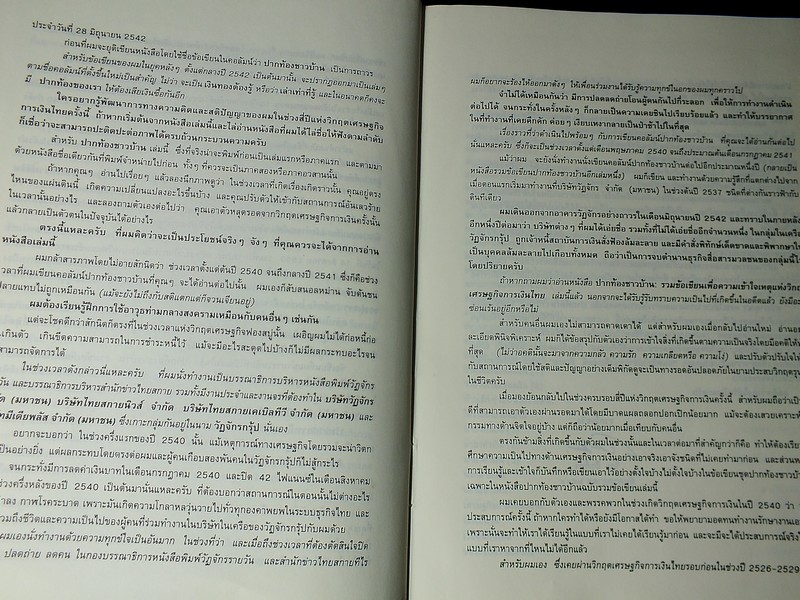 ประจำวันที่ 28 มิถุนายน 2542
ก่อนที่ผมจะยุติเขียนหนังสือโดยใช้ชื่อข้อเขียนในคอลัมน์ว่า ปากท้องชาวบ้าน เป็นการถาวร
สำหรับข้อเขียนของผมในยุคหลังๆ ตั้งแต่กลางปี 2542 เป็นต้นมานั้น จะปรากฏออกมาเป็นเล่มๆ
ตามชื่อคอลัมน์ที่ตั้งขึ้นใหม่เป็นสำคัญ ไม่ว่า จะเป็น เงินทองต้องรู้ หรือว่า เล่าเท่าที่รู้ และในอนาคตก็คงจะ
มี ปากท้องของเรา ให้ต้องเสียเงินซื้อกันอีก
ใครอยากรู้พัฒนาการทางความคิดและสติปัญญาของผมในช่วงสี่ปีแห่งวิกฤตเศรษฐกิจ
การเงินไทยครั้งนี้ ถ้าหากเริ่มต้นจากหนังสือเล่มนี้และไล่อ่านหนังสือที่ผมได้ไล่ชื่อให้ฟังตามลำดับ
ก็เชื่อว่าจะสามารถปะติดปะต่อภาพได้ครบถ้วนกระบวนความครับ
สำหรับ ปากท้องชาวบ้าน เล่มนี้ ซึ่งที่จริงน่าจะพิมพ์ก่อนเป็นเล่มแรกหรือภาคแรก และตามมา
ด้วยหนังสือชื่อเดียวกันที่พิมพ์จำหน่ายไปก่อน ทั้งๆ ที่ควรจะเป็นภาคสองหรือภาคอวสานนั้น
ถ้าหากคุณๆ อ่านไปเรื่อยๆ แล้วลองนึกภาพดูว่า ในช่วงเวลาที่เกิดเรื่องเกิดราวนั้น คุณอยู่ตรง
ไหนของแผ่นดินนี้ เกิดความเปลี่ยนแปลงอะไรขึ้นบ้าง และคุณปรับตัวให้เข้ากับสถานการณ์อันเลวร้าย
ในเวลานั้นอย่างไร และลองถามตัวเองต่อไปว่า คุณเอาตัวหลุดรอดจากวิกฤตเศรษฐกิจการเงินครั้งนั้น
แล้วกลายเป็นตัวตนในปัจจุบันได้อย่างไร
ตรงนี้แหละครับ ที่ผมคิดว่าจะเป็นประโยชน์จริงๆ จังๆ ที่คุณควรจะได้จากการอ่าน
หนังสือเล่มนี้
ผมกล้าสารภาพโดยไม่อายสักนิดว่า ช่วงเวลาตั้งแต่ต้นปี 2540 จนถึงกลางปี 2541 ซึ่งก็คือช่วง
เวลาที่ผมเขียนคอลัมน์ปากท้องชาวบ้านที่คุณๆ จะได้อ่านต่อไปนั้น ผมเองก็สับสนอลหม่าน จับต้นชน
ปลายแทบไม่ถูกเหมือนกัน (แม้จะยังไม่ถึงกับสติแตกแต่ก็จวนเจียนอยู่)
ผมต้องเรียนรู้ฝึกการใช้อาวุธท่ามกลางสงครามเหมือนกับคนอื่นๆ เช่นกัน
แต่จะโชคดีกว่าสักนิดก็ตรงที่ในช่วงเวลาแห่งวิกฤตเศรษฐกิจฟองสบู่นั้น เผอิญผมไม่ได้ก่อหนี้ก่อ
เกินตัว เกินขีดความสามารถในการชำระหนี้ไว้ แม้จะมีอะไรสะดุดไปบ้างก็ไม่มีผลกระทบอะไรจน
สามารถจัดการได้
ในช่วงเวลาดังกล่าวนี้แหละครับ ที่ผมนั่งทำงานเป็นบรรณาธิการบริหารหนังสือพิมพ์วัฏจักร
วัน และบรรณาธิการบริหารสำนักข่าวไทยสกาย รวมทั้งมีงานประจำและงานจรที่ต้องทำใน บริษัทวัฏจักร
ด (มหาชน) บริษัทไทยสกายนิวส์ จำกัด บริษัทไทยสกายเคเบิลทีวี จำกัด (มหาชน) และ
ทมีเดียพลัส จำกัด (มหาชน) ซึ่งเกาะกลุ่มกันอยู่ในนาม วัฏจักรกรุ๊ป นั่นเอง
อยากจะบอกว่า ในช่วงครึ่งแรกของปี 2540 นั้น แม้เหตุการณ์ทางเศรษฐกิจโดยรวมจะน่าวิตก
เป็นอย่างยิ่ง แต่ผลกระทบโดยตรงต่อผมและผู้คนเกือบสองพันคนในวัฏจักรกรุ๊ปก็ไม่สู้กระไร
จนกระทั่งมีการลดค่าเงินบาทในเดือนกรกฎาคม 2540 และปิด 42 ไฟแนนซ์ในเดือนสิงหาคม
ช่วงครึ่งหลังของปี 2540 เป็นต้นมานั่นแหละครับ ที่ต้องบอกว่าสถานการณ์ในตอนนั้นไม่ต่างอะไร
าลง กาฬโรคระบาด เพราะมันเกิดความโกลาหลวุ่นวายไปทั่วทุกองคาพยพในระบบธุรกิจไทย และ
วมถึงชีวิตและความเป็นไปของผู้คนที่ร่วมทำงานในบริษัทในเครือของวัฏจักรกรุ๊ปกับผมด้วย
ผมเองนั่งทำงานด้วยความทุกข์ใจเป็นอันมาก ในช่วงที่ว่า และเมื่อถึงช่วงเวลาที่ต้องตัดสินใจปิด
ปลดถ่าย ลดคน ในกองบรรณาธิการหนังสือพิมพ์วัฏจักรรายวัน และสำนักข่าวไทยสกายทีไร
ผมก็อยากจะร้องไห้ออกมาดังๆ ให้เพื่อนร่วมงานได้รับรู้ความทุกข์ในอกของผมทุกคราวไป
จำไม่ได้เหมือนกันว่า มีการปลดลดถ่ายโอนผู้คนกันไปกี่ระลอก เพื่อให้การทำงานดำเนิน
ต่อไปได้ จนกระทั่งในครั้งหลังๆ ก็กลายเป็นความเคยชินไปเรียบร้อยแล้ว และทำให้บรรยากาศ
ในที่ทำงานที่เคยคึกคัก ค่อยๆ เงียบเหงากลายเป็นป่าช้าไปในที่สุด
เรื่องราวที่ว่าดำเนินไปพร้อมๆ กับการเขียนคอลัมน์ปากท้องชาวบ้าน ที่คุณจะได้อ่านกันต่อไป
นั่นแหละครับ ซึ่งก็จะเป็นช่วงเวลาตั้งแต่เดือนพฤษภาคม 2540 จนถึงประมาณต้นเดือนกรกฎาคม 2541
แม้ว่าผม จะยังนั่งทำงานนั่งเขียนคอลัมน์ปากท้องชาวบ้านต่อไปอีกประมาณหนึ่งปี (กลายเป็น
หนังสือรวมข้อเขียนปากท้องชาวบ้านอีกเล่มหนึ่ง) ผมก็เขียน และทำงานด้วยความรู้สึกที่แตกต่างไปจาก
เมื่อตอนแรกเริ่มมาทำงานที่บริษัทวัฏจักร จำกัด (มหาชน) ในช่วงต้นปี 2537 ชนิดที่ต่างกันราวฟ้ากับ
ดินทีเดียว
ผมเดินออกจากอาคารวัฏจักรอย่างถาวรในเดือนมิถุนายนปี 2542 และทราบในภายหลัง
อีกหนึ่งปีต่อมาว่า บริษัทต่างๆ ที่ผมได้เอ่ยชื่อ รวมทั้งที่ไม่ได้เอ่ยชื่ออีกจำนวนหนึ่ง ในกลุ่มในเครือ
วัฏจักรกรุ๊ป ถูกเจ้าหนี้สถาบันการเงินสั่งฟ้องล้มละลาย และมีคำสั่งพิทักษ์เด็ดขาดและพิพากษาให้
เป็นบุคคลล้มละลายไปเกือบทั้งหมด ถือว่าเป็นการจบตำนานธุรกิจสื่อสารมวลชนของกลุ่มนี้ไป
โดยปริยายครับ
ถ้าหากถามผมว่าอ่านหนังสือ ปากท้องชาวบ้าน: รวมข้อเขียนเพื่อความเข้าใจเหตุแห่งวิกฤต
เศรษฐกิจการเงินไทย เล่มนี้แล้ว นอกจากจะได้รับรู้รับทราบความเป็นไปที่เกิดขึ้นในอดีตแล้ว ยังมีอะไร
ซ่อนเร้นอยู่อีกหรือไม่
สำหรับคนอื่นผมเองไม่สามารถคาดเดาได้ แต่สำหรับผมเองเมื่อกลับไปอ่านใหม่ อ่านอย่าง
ละเอียดพินิจพิเคราะห์ ผมก็ได้ข้อสรุปกับตัวเองว่าการเข้าใจสิ่งที่เกิดขึ้นตามความเป็นจริงโดยมีอคติให้น้อย
ที่สุด (ไม่ว่าอคตินั้นจะมาจากความกลัว ความรัก ความเกลียดหรือ ความโง่) และปรับตัวปรับใจให้
กับสถานการณ์โดยใช้สติและปัญญาอย่างเต็มพิกัดดูจะเป็นทางรอดอันปลอดภัยในยามประสบวิกฤตรุนแรง
ในชีวิตครับ
เมื่อมองย้อนกลับไปในช่วงครบรอบสี่ปีแห่งวิกฤตเศรษฐกิจการเงินครั้งนี้ สำหรับผมถือว่าเป็น
ดีที่สามารถเอาตัวเองผ่านรอดมาได้โดยมีบาดแผลถลอกปอกเปิกน้อยมาก แม้จะต้องเสวยเคราะห์
กรรมทางด้านจิตใจอยู่บ้าง แต่ก็ถือว่าน้อยมากเมื่อเทียบกับคนอื่น
ตรงกันข้ามสิ่งที่เกิดขึ้นกับตัวผมในช่วงนั้นและในเวลาต่อมาที่สำคัญกว่าก็คือ ทำให้ต้องเรียน
ศึกษาความเป็นไปทางด้านเศรษฐกิจการเงินอย่างเอาจริงเอาจังชนิดที่ไม่เคยทำมาก่อน และส่วนหนึ่ง
การเรียนรู้และเข้าใจก็บันทึกหรือเขียนเอาไว้อย่างตั้งใจบ้างไม่ตั้งใจบ้างในข้อเขียนชุดปากท้องชาวบ้าน
เฉพาะในหนังสือปากท้องชาวบ้านฉบับรวมข้อเขียนเล่มนี้
ผมเคยบอกกับตัวเองและพรรคพวกในช่วงเกิดวิกฤตเศรษฐกิจการเงินในปี 2540 ว่า
ประสบการณ์ครั้งนี้ ถ้าหากใครทำได้หรือยังมีโอกาสได้ทำ ขอให้พยายามอดทนทำงานรักษางานเอาไว้
เพราะนั่นจะทำให้เราได้เรียนรู้ในแบบที่เราไม่เคยได้เรียนรู้มาก่อน และจะมีจะได้ประสบการณ์จริงใน
แบบที่เราหาจากที่ไหนไม่ได้อีกแล้ว
สำหรับผมเอง ซึ่งเคยผ่านวิกฤตเศรษฐกิจการเงินไทยรอบก่อนในช่วงปี 2526-2529